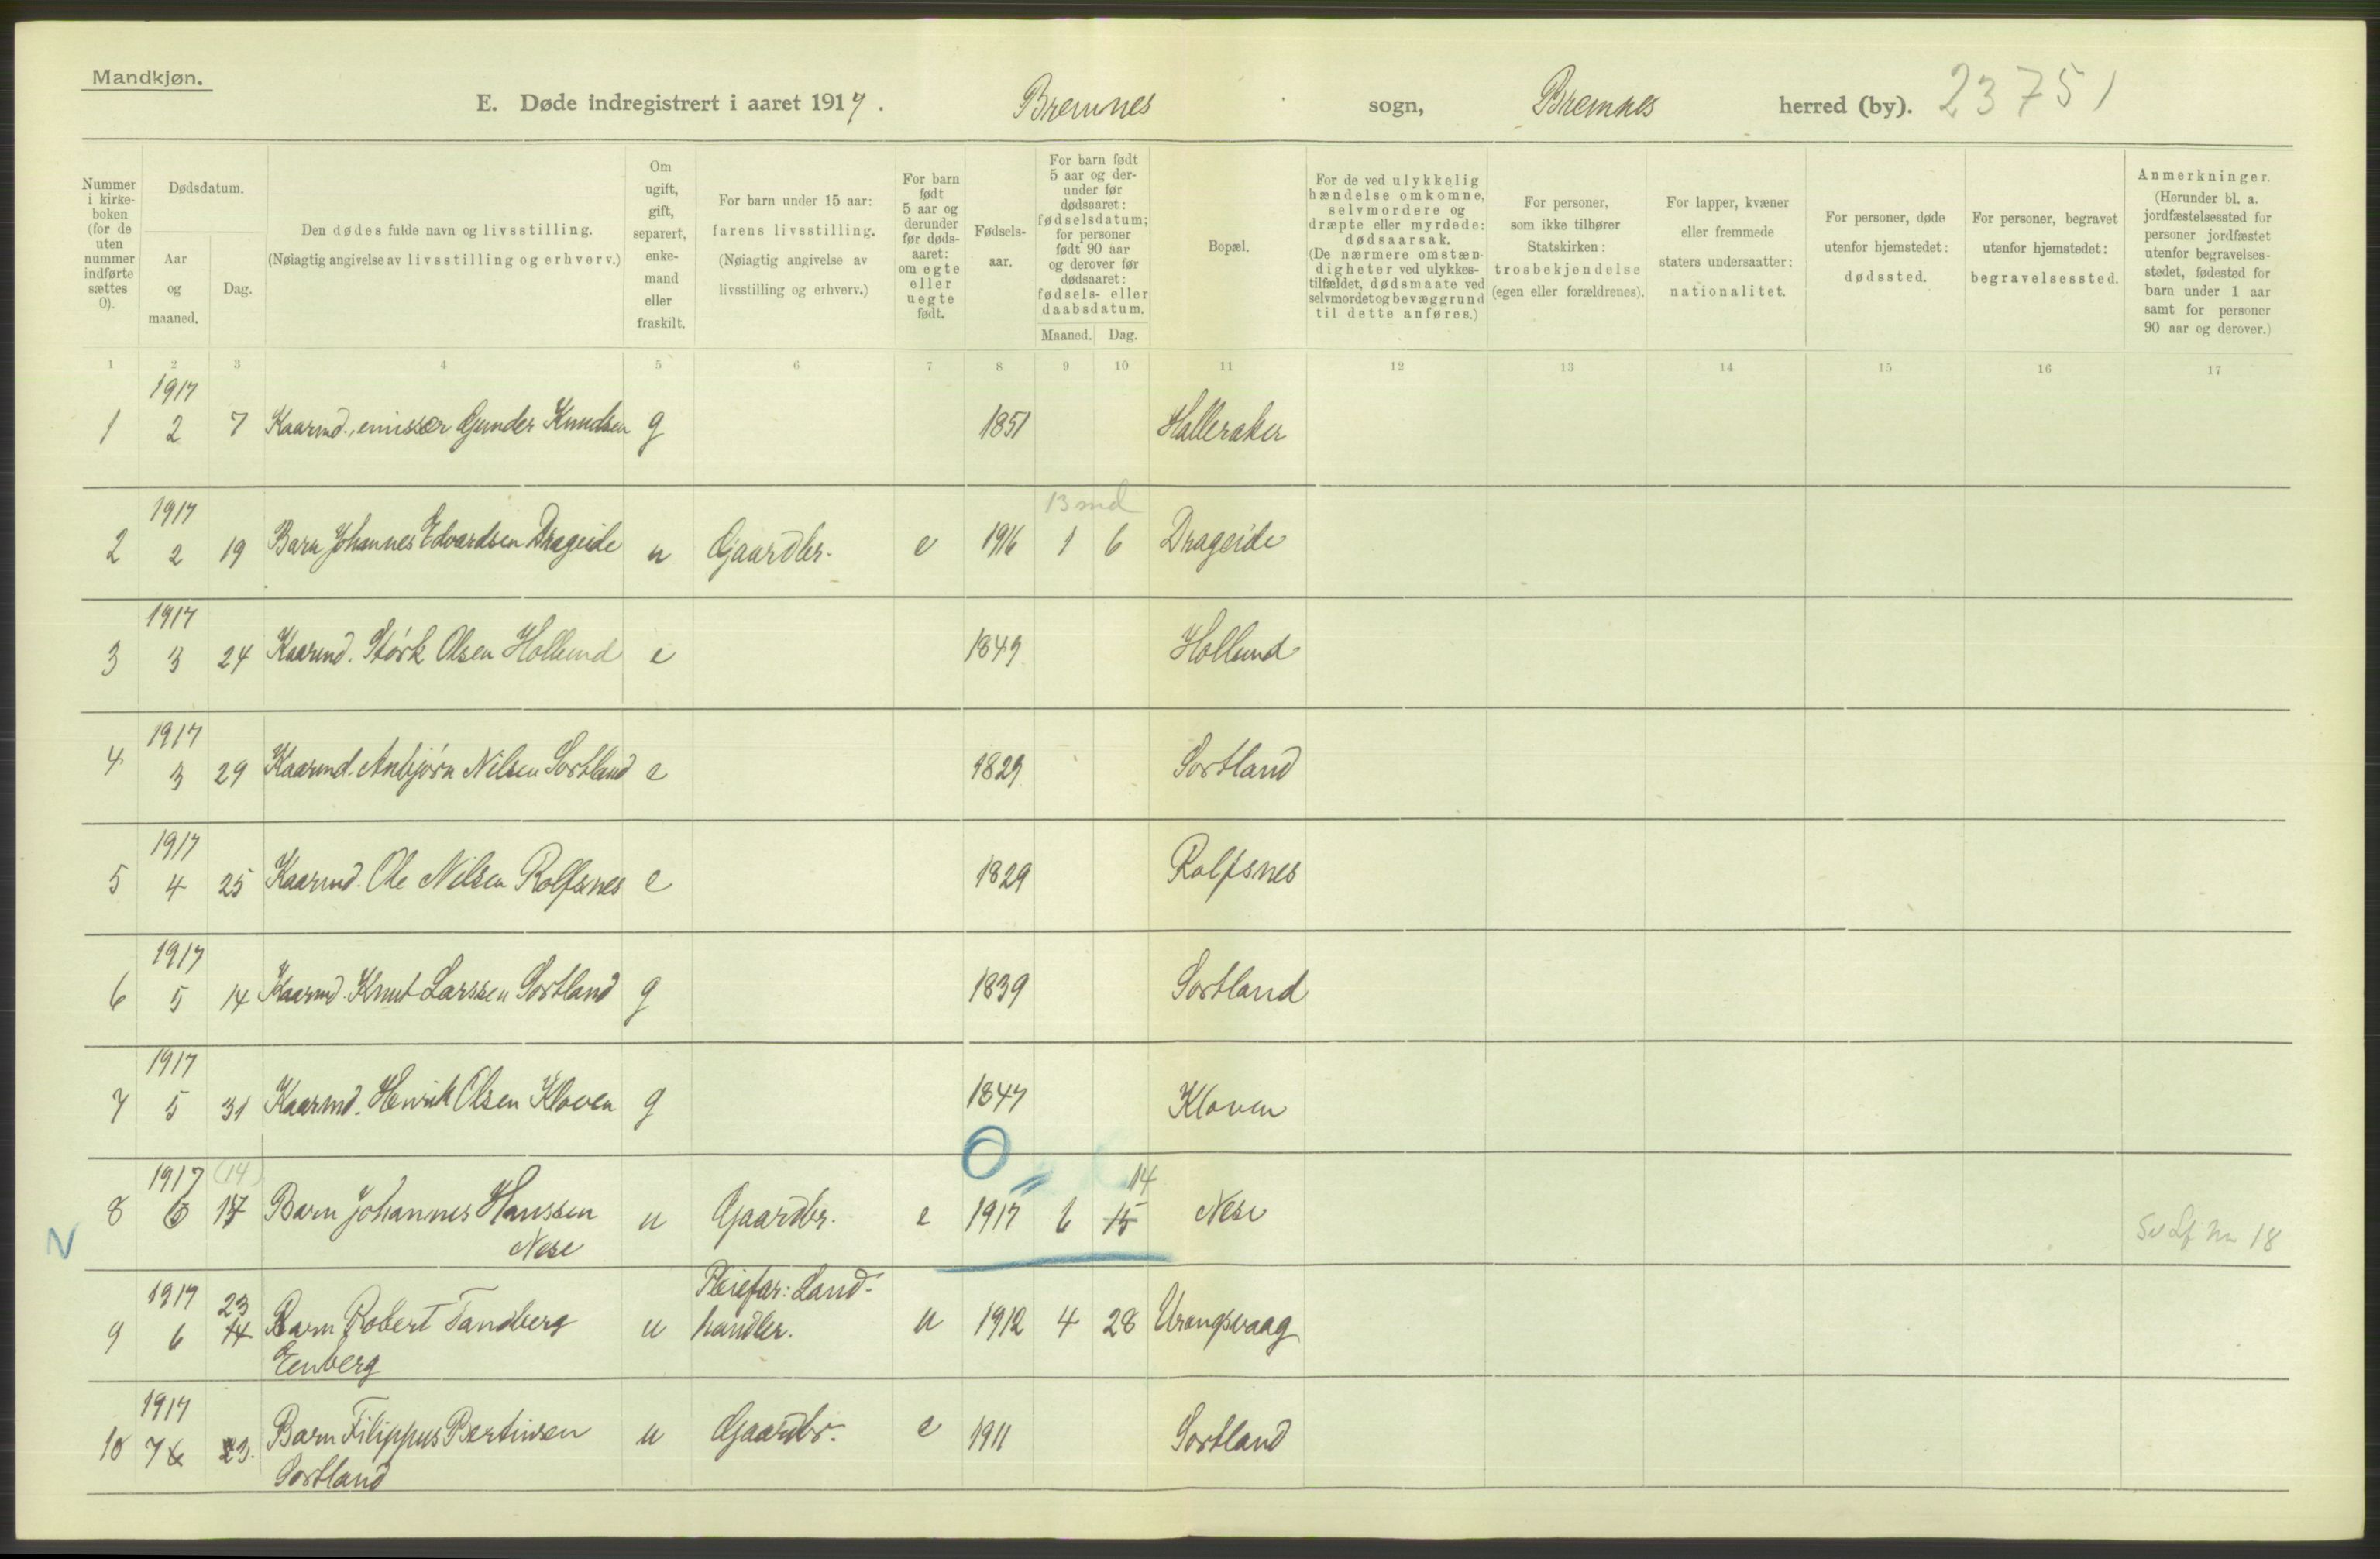 Mandkjøn.
E. Døde indregistrert i aaret 1917. Bremnes sogn, Bremnes herred (by). 23751
Nummer
i kirke-
boken
(for de
uten
nummer
indførte
sættes
0).
Dødsdatum.
Aar
og
maaned.
Dag.
Den dødes fulde navn og livsstilling.
(Nøiagtig angivelse av livsstilling og erhverv.)
Om
ugift,
gift,
separert,
enke-
mand
eller
fraskilt.
For barn under 15 aar:
farens livsstilling.
(Nøiagtig angivelse av
livsstilling og erhverv.)
For barn
født
5 aar og
derunder
før døds-
aaret:
om egte
eller
uegte
født.
Fødsels-
aar.
For barn født
5 aar og der-
under før
dødsaaret:
fødselsdatum;
for personer
født 90 aar
og derover før
dødsaaret:
fødsels- eller
daabsdatum.
Maaned. Dag.
Bopæl.
For de ved ulykkelig
hændelse omkomne,
selvmordere og
dræpte eller myrdede:
dødsaarsak.
(De nærmere omstæn-
digheter ved ulykkes-
tilfældet, dødsmaate ved
selvmordet og bevæggrund
til dette anføres.)
For personer,
som ikke tilhører
Statskirken:
trosbekjendelse
(egen eller forældrenes).
For lapper, kvæner
eller fremmede
staters undersaatter:
nationalitet.
For personer, døde
utenfor hjemstedet:
dødssted.
For personer, begravet
utenfor hjemstedet:
begravelsessted.
Anmerkninger.
(Herunder bl. a.
jordfæstelsessted for
personer jordfæstet
utenfor begravelses-
stedet, fødested for
barn under 1 aar
samt for personer
90 aar og derover.)
1 2 3 4 5 6 7 8 9 10 11 12 13 14 15 16 17
1917
1 2 7 Kaarmd., emissær Gunder Knudsen g 1851 Halleraker
1917 13 md
2 2 19 Barn Johannes Edvardsen Drageide u Gaardbr. e 1916 1 6 Drageide
1917
3 3 24 Kaarmd. Størk Olsen Hollund e 1849 Hollund
1917
4 3 29 Kaarmd. Anbjørn Nilsen Sortland e 1829 Sortland
1917
5 4 25 Kaarmd. Ole Nilsen Rolfsnes e 1829 Rolfsnes
1917
6 5 14 Kaarmd. Knut Larssen Sortland g 1839 Sortland
1917
7 5 31 Kaarmd. Henrik Olsen Kloven g 1847 Kloven
1917 (14) 14
8 6 Barn Johannes Hanssen u Gaardbr. e 1917 6 15 Nese
Nese 18
1917 23 Pleiefar: Land-
9 6 14 Barn Robert Tandberg u handler. u 1912 4 28 Urangsvaag
Eenberg
1917
10 7 23. Barn Filippus Bertinsen u Gaardbr. e 1911 Sortland
Sortland